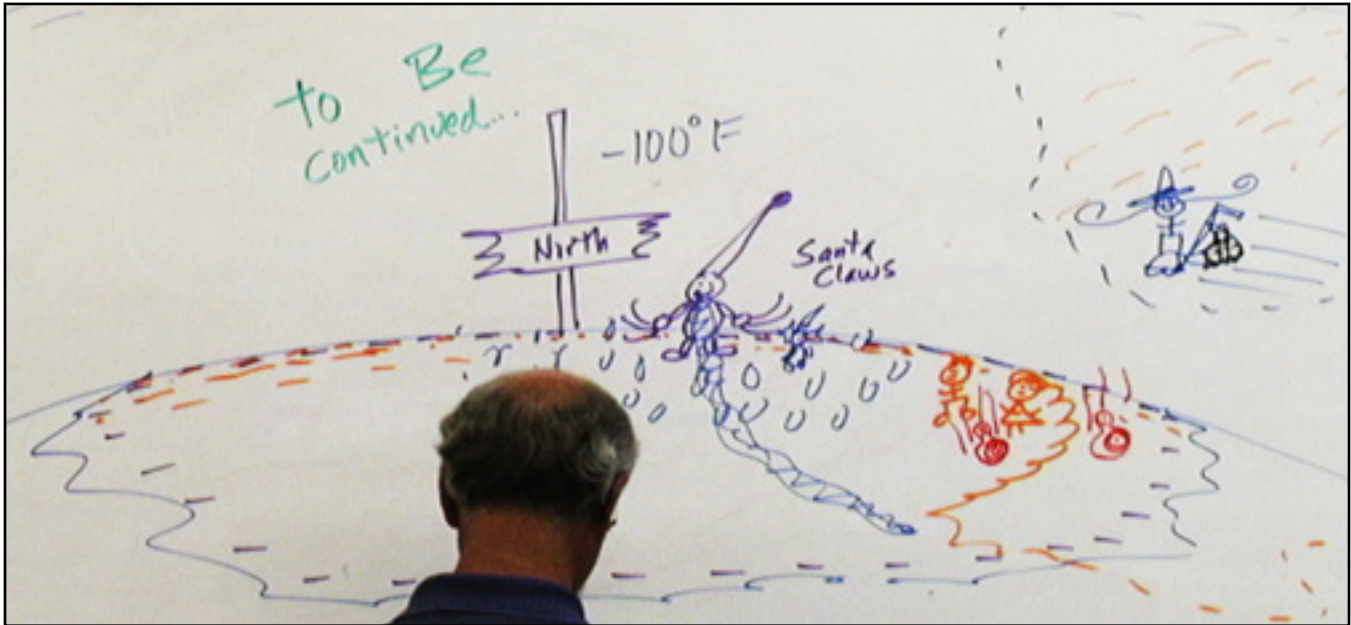 To Be
Continued...
-100°F
North
Santa
Claws